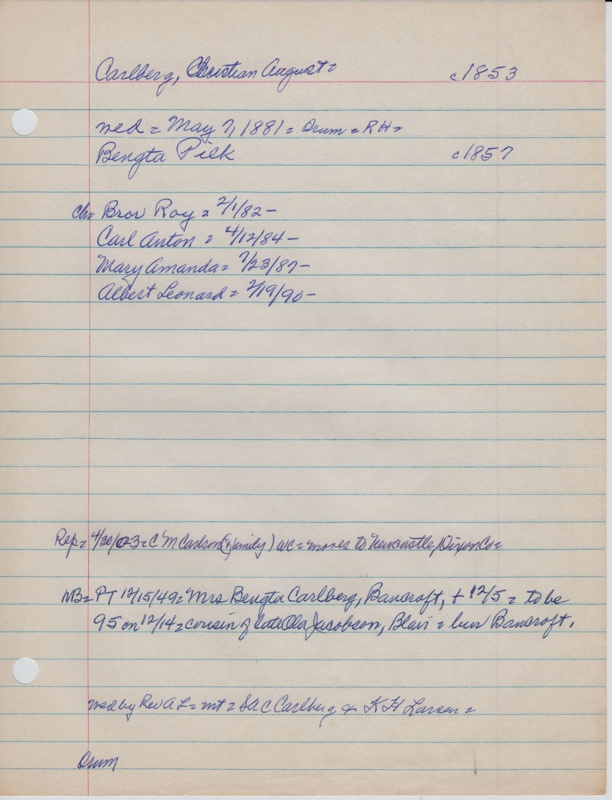 Carlberg, Christian August = c1853
med = May 7, 1881 = Orum = RH =
Bengta Pilk c1857
ch= Bror Roy = 2/1/82 -
Carl Anton = 4/12/84 -
Mary Amanda = 7/23/87 -
Albert Leonard = 2/19/90 -
Rep = 4/26/03 = C M Carlson (+ family) WC = moves to Newcastle, Dixon Co =
NB = PT 12/15/49 = Mrs Bengta Carlberg, Bancroft, + 12/5 = to be
95 on 12/14 = cousin of late Ola Jacobson, Blair = bur Bancroft.
med by Rev A L = mt = SAC Carlberg & K H Larsen =
Orum